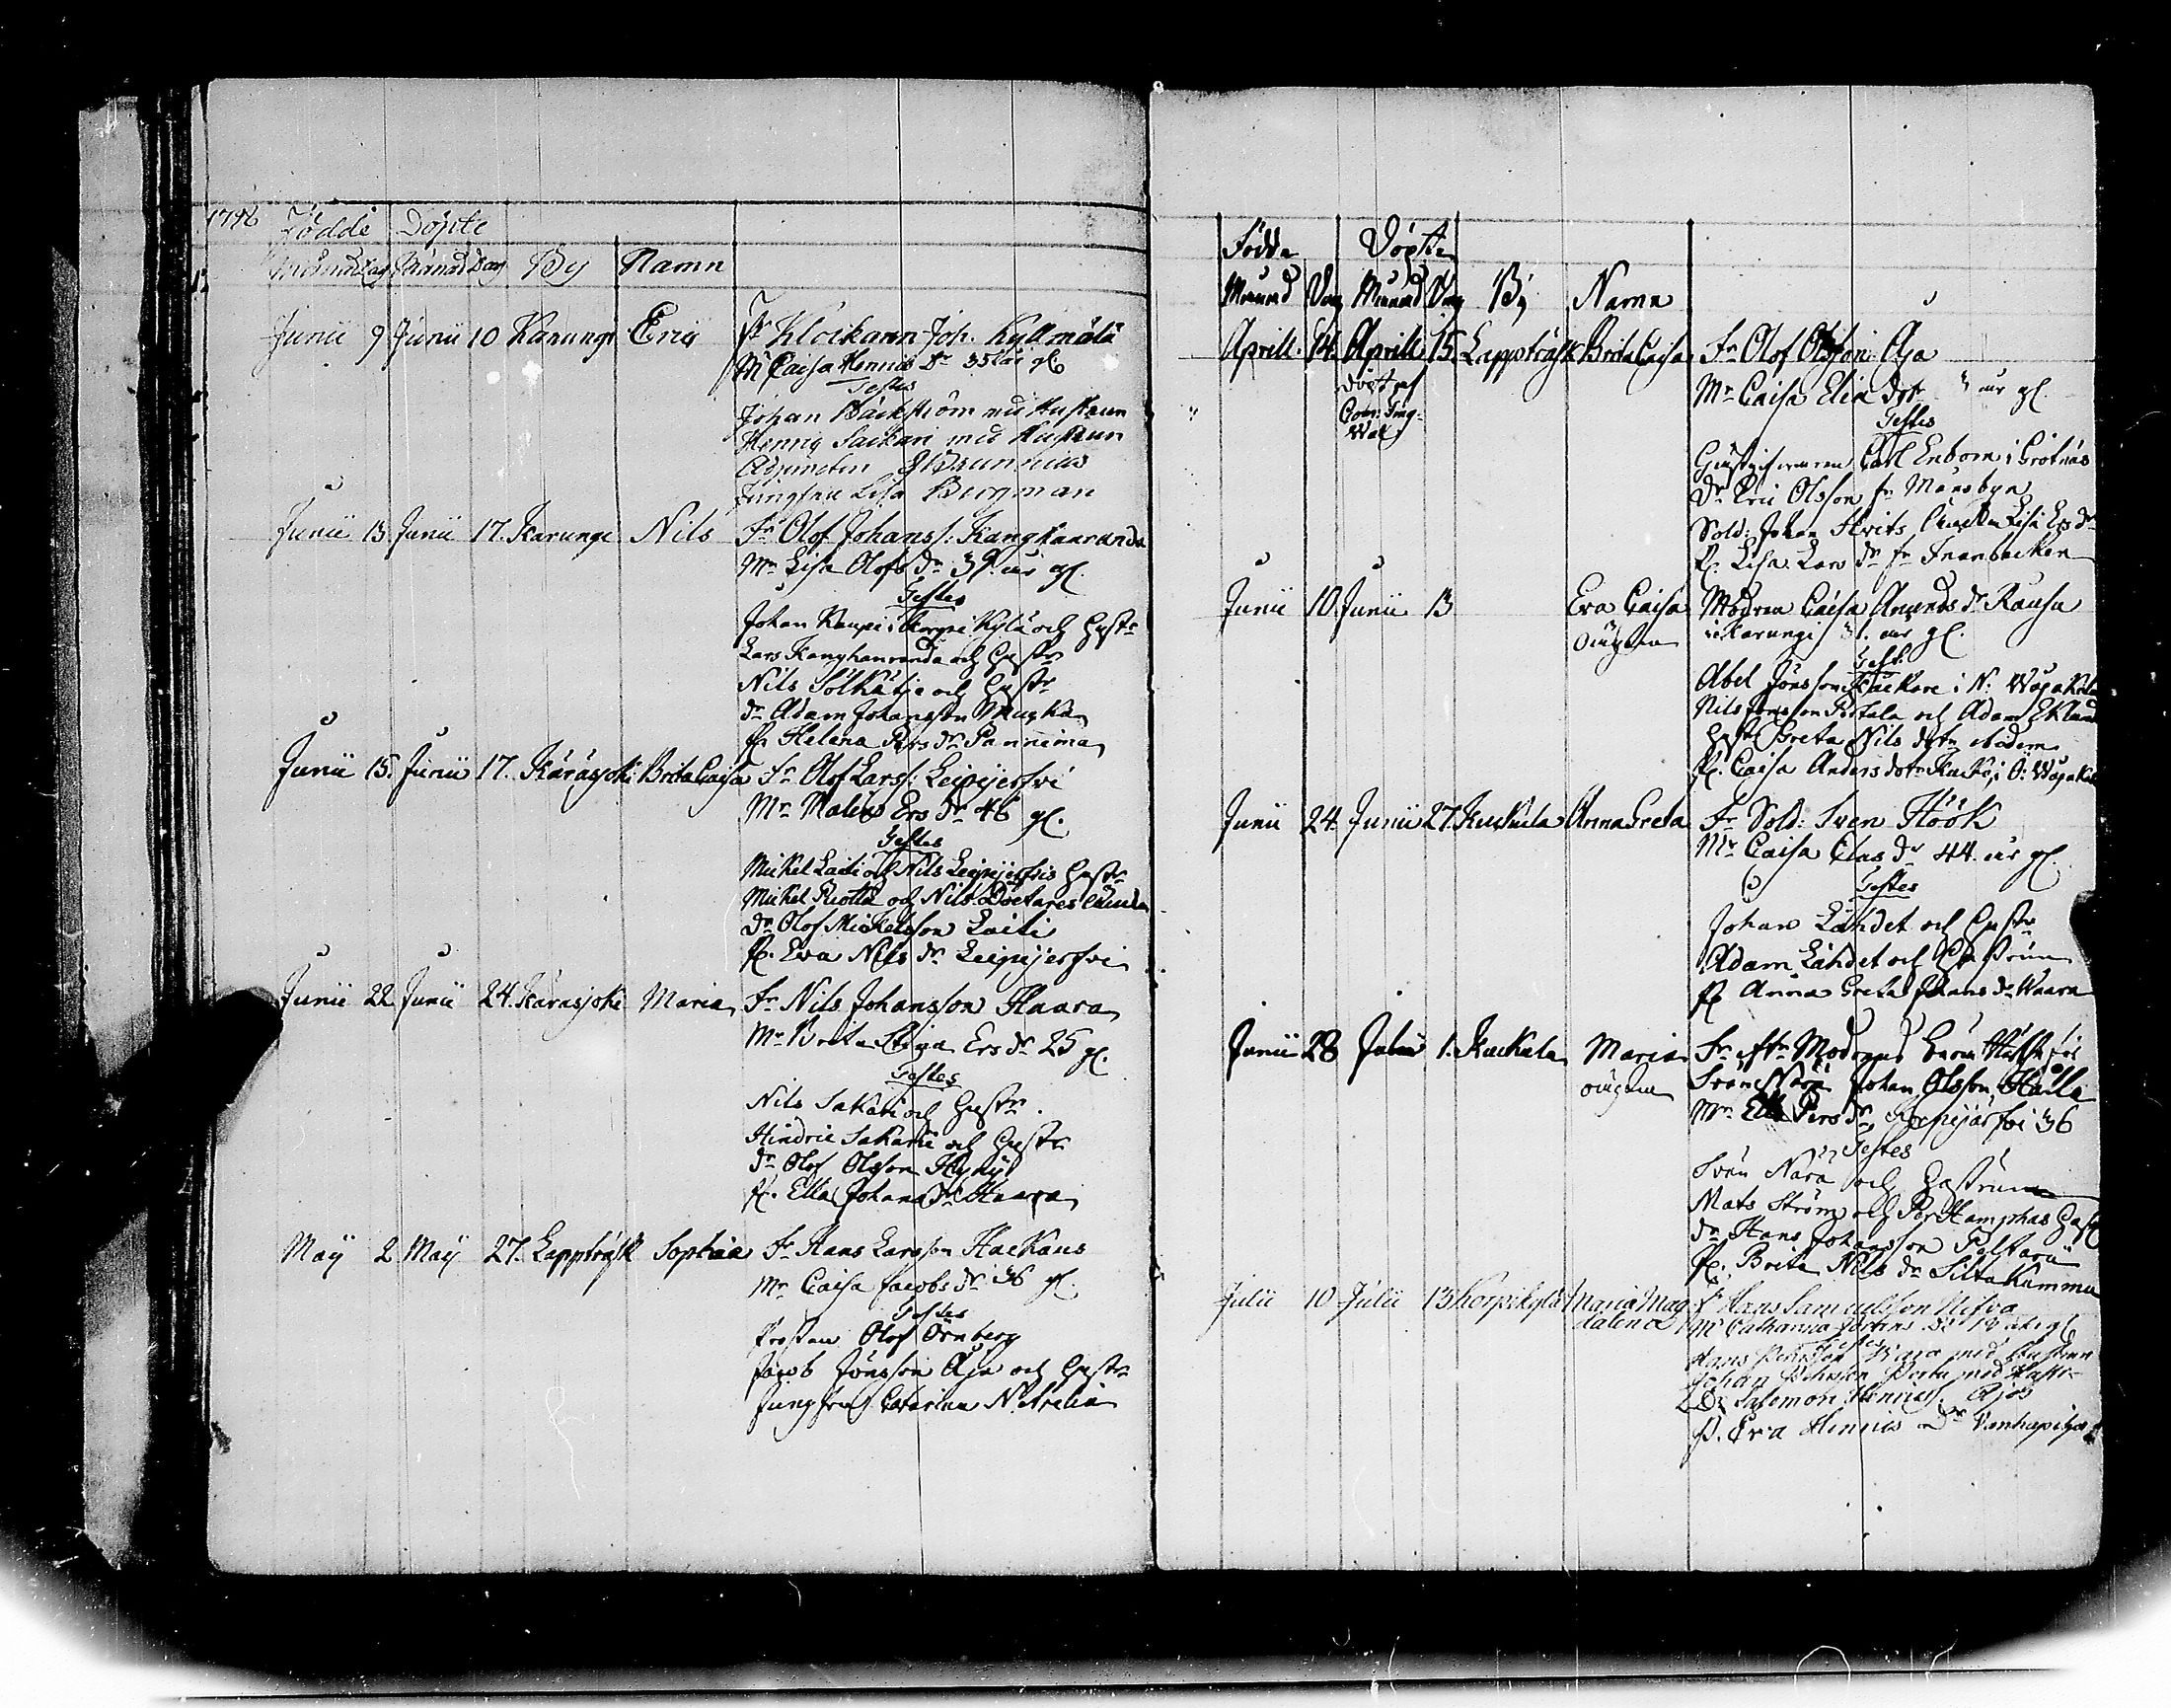 1796 Födde Döpte
Månad Dag Månad Dag By Namn
Junii 9 Junii 10 Karungi Eric Fr Klockarn Joh. Kyllmälä
Mr Caisa Henrics Dr 35 åår gl
Testes
Johan Bäckström med Hustrun
Henric Sackari med Hustrun
Adjuncten Brunnius
Jungfru Lisa Bergman
Junii 13 Junii 17. Karungi Nils Fr Olof Johanss: Kangkaaranda
Mr Lisa Olofs dr 39. år gl.
Testes
Johan Kaupi i Korpi Kylä och Hustr
Lars Kanghanranda och Hustr
Nils Sölkätje och Hustr
dr Adam Johansson
P. Helena Pers dr Pannima
Junii 15. Junii 17. Karasjoki Brita Caisa Fr Olof Larss: Leipijerfvi
Mr Malin Ers dr 46 gl.
Testes
Mickel Laiti och Nils Leipijerfvis Hustr
Mickel Riotta och Nils
dr Olof Mickelsson Laiti
P. Eva Nils dr Leipijerfvi
Junii 22 Junii 24. Karasjoki Maria Fr Nils Johansson Haara
Mr Brita Stina Ers dr 25 gl.
Testes
Nils Sakari och Hustr.
Hindric Sakari och Hustr
dr Olof Olsson Hyny
P. Ella Johans dr Haara
Maij 2 Maij 27. Lappträsk Sophia Fr Hans Larsson Hackaus
Mr Caisa Jacobs dr 36 gl.
Testes
Olof Örnberg
Jacob Jönsson Aja och Hustr
Jungfru Catarina N.
Födde Döpte
Månad Dag Månad Dag By Namn
Aprill. 14. Aprill 15 Lappträsk Brita Caisa Fr Olof Olsson Aja
döpt af Mr Caisa Elia dotr år gl.
Com: Ting-
Wall
Testes
Gästgifvaren Carl Enbom i Grötnäs
Dr Eric Olsson fr Månsbyn
Sold: Johan Hvits Lisa Ers dr
P. Lisa Lars dr fr Franbacken
Junii 10. Junii 13 Eva Caisa Modren Caisa Amunds dr Kausa
oägta i Karungi 31. år gl.
Test:
Abel Jönsson i N: Wojakala
Nils Jonsson Portala och Adam Eklund
Hust Greta Nils dotr
P. Caisa Anders dotr i Ö: Wojakala
Junii 24. Junii 27. Kuckula Anna Greta Fr Sold: Sven Höök
Mr Caisa Clas dr 44. år gl.
Testes
Johan Lahdet och Hustr
Adam Lahdet och Hustrun
P. Anna Greta Johans dr Waara
Junii 28 Julii 1. Kuckula Maria Fr efter Modrens
oägta Johan Olsson Halla
Mr Ella Pers dr 36
Testes
Sven Nara och Hustrun
Mats Ström och Per Hamphas Hust
dr Hans Johansson Paltari
P. Brita Nils dr Siltakammu
Julii 10 Julii 13 Korpikylä Maria Mag- Fr Hans Samuelsson Nifva
dalena Mr Catharina
Testes
Hans med Hustrun
Johan Pehrsson med Hustr-
Dr Salomon Henricss.
P. Eva Henrics Dr Vanhapiha